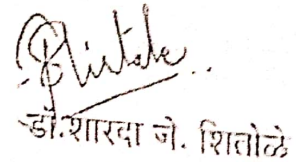 डॉ. शारदा जे. शितोळे